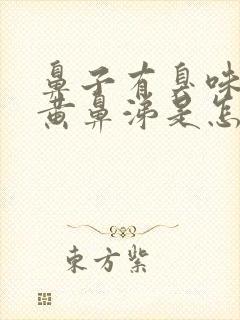 鼻子有臭味
黄鼻涕是怎
東方紫